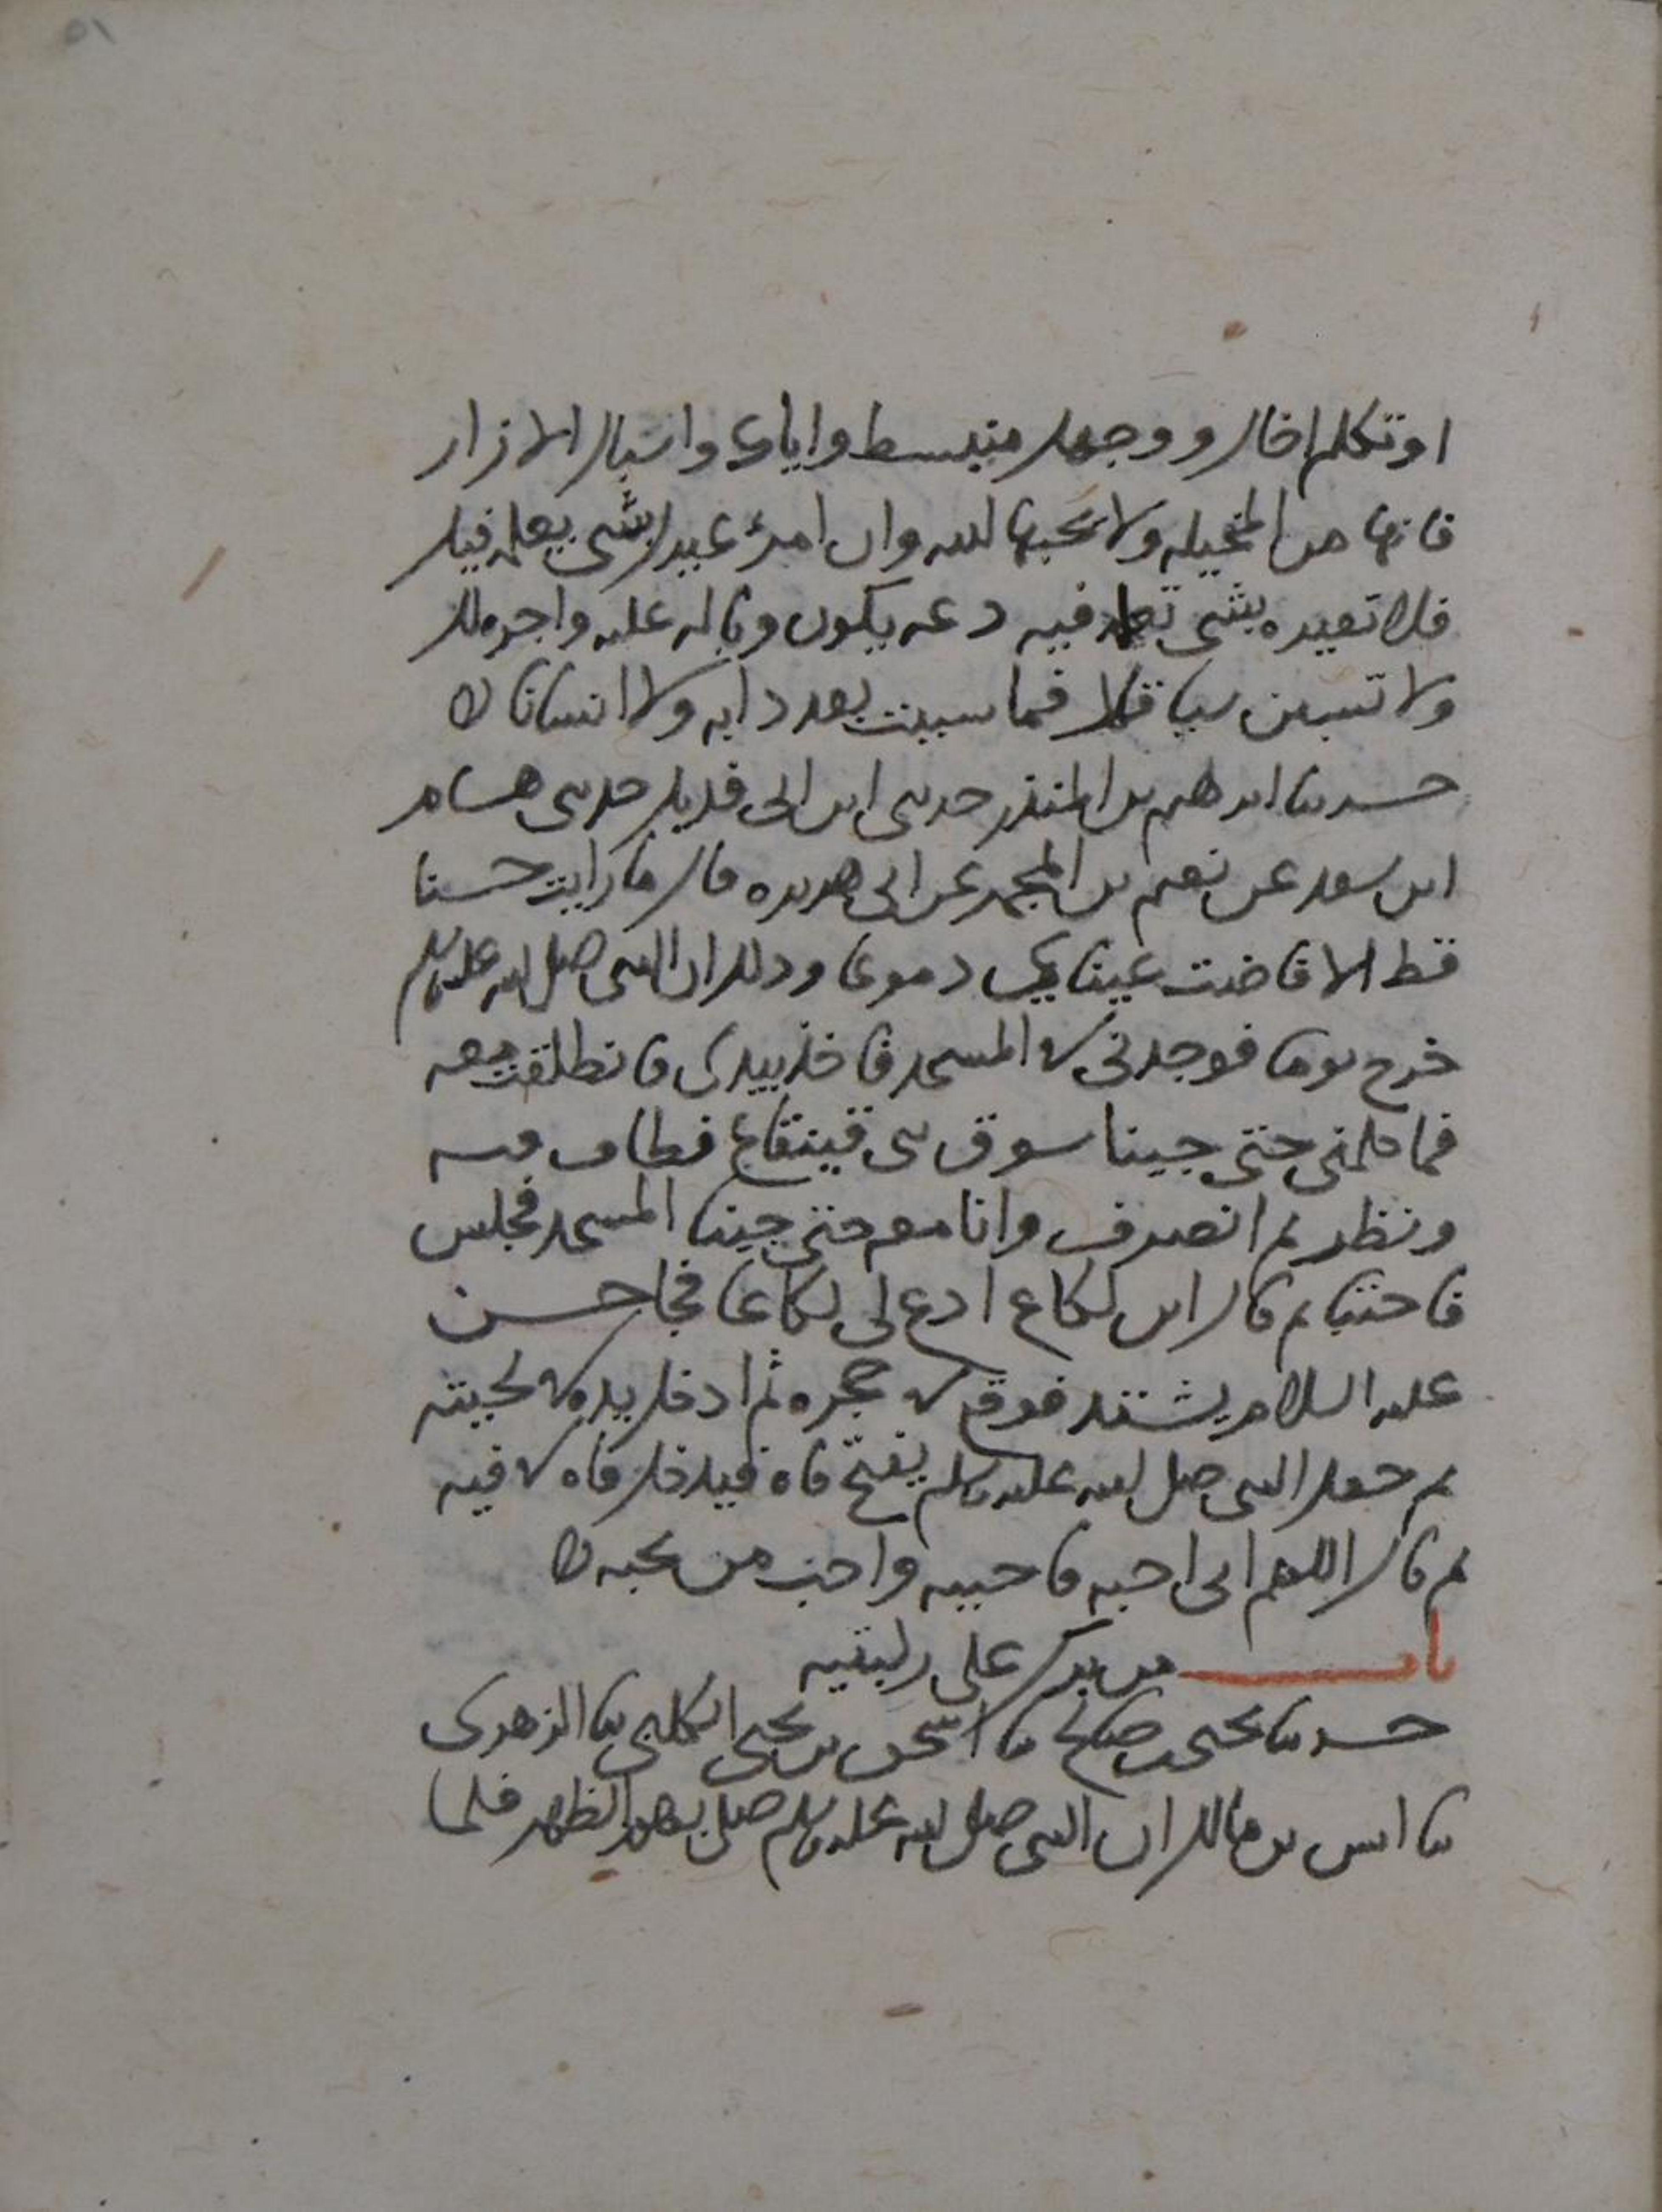 او تكلم اخاك ووجهك منبسط واياك واسبال الازار
فانها من المخيله ولا يحبها الله وان امرؤ عيرك بشي يعلمه فيك
فلا تعيره بشي تعلمه فيه دعه يكون وباله عليه واجره لك
ولا تسبن شيا قال فما سببت بعد دابه ولا انسانا
حدثنا ابرهيم بن المنذر حدثني ابن ابي فديك حدثني هشام
ابن سعد عن نعيم بن المجمر عن ابي هريره قال ما رايت حسنا
قط الا فاضت عيناي دموعا وذلك ان النبي صلى الله عليه وسلم
خرج يوما فوجدني في المسجد فاخذ بيدي فانطلقت معه
فما كلمني حتى جينا سوق بني قينقاع فطاف فيه
ونظر ثم انصرف وانا معه حتى جينا المسجد فجلس
فاحتبا ثم قال اين لكاع ادع لي لكاعا فجا حسن
عليه السلام يشتد فوقع في حجره ثم ادخل يده في لحيته
ثم جعل النبي صلى الله عليه وسلم يفتح فاه فيدخل فاه في فيه
ثم قال اللهم اني احبه فاحببه واحب من يحبه
باب من برك على ركبتيه
حدثنا يحيى بن صالح ثنا اسحق بن يحيى الكلبي ثنا الزهري
ثنا انس بن مالك ان النبي صلى الله عليه وسلم صلى بهم الظهر فلما